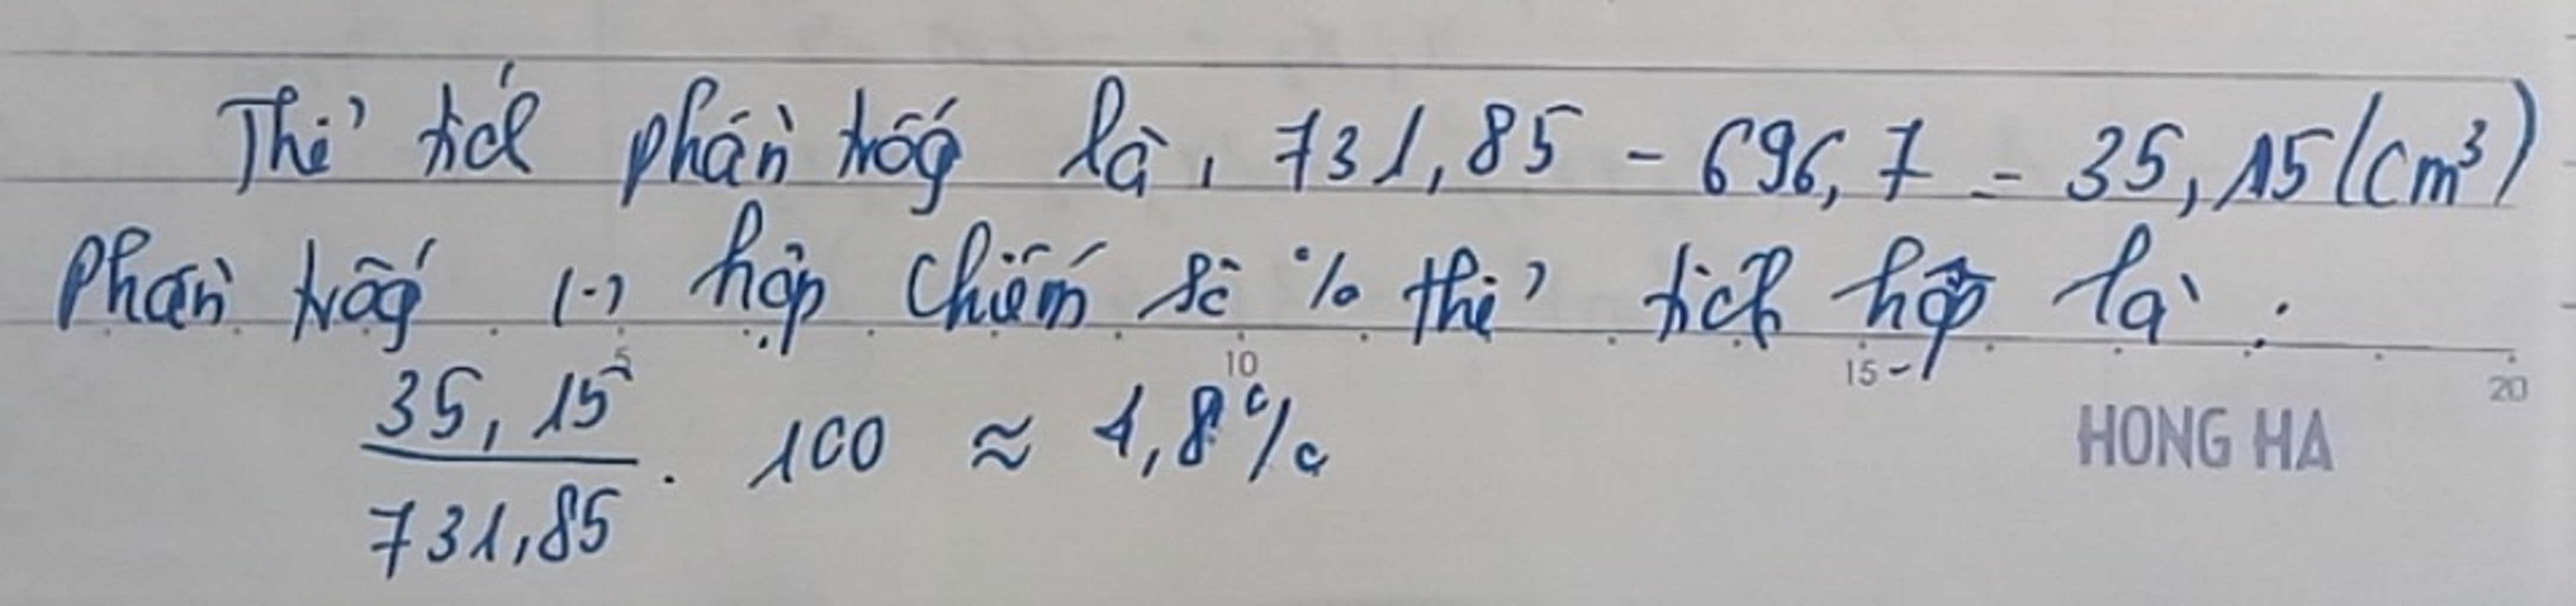 Thể tích phần trốg là, 731,85 - 696,7 = 35,15 (cm³)
Phần trốg (-) hộp chiếm số % thể tích hộp là :
5 10 15 20
35,15 / 731,85 . 100 ≈ 4,8%
HONG HA